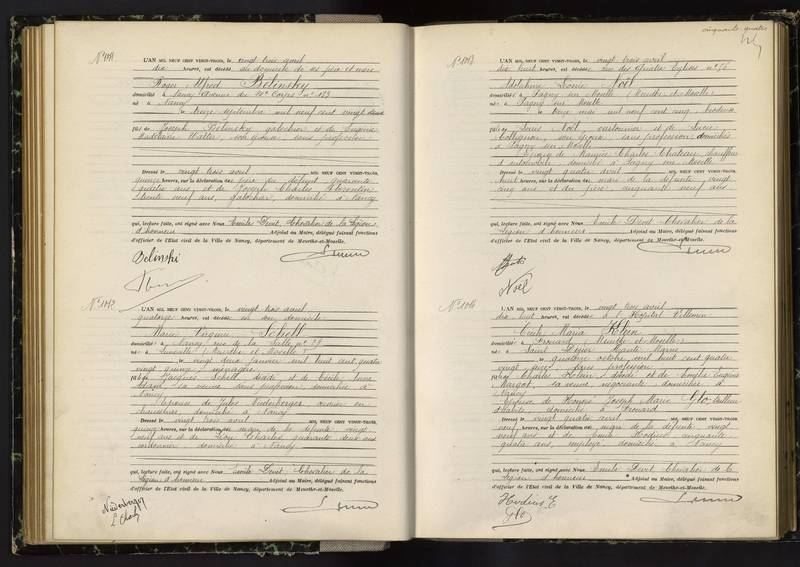 cinquante quatre
L'AN MIL NEUF CENT VINGT-TROIS, le vingt trois avril
dix heures, est décédé au domicile de ses père et mère
Roger Alfred Belinsky
domicilié à Nancy avenue du 20e Corps n° 123
né à Nancy
le treize septembre mil neuf cent vingt deux
fils de Joseph Belinsky galochier et de Eugénie
Walter, son épouse, sans profession
Dressé le vingt trois avril MIL NEUF CENT VINGT-TROIS,
quinze heures, sur la déclaration du père du défunt quarante
quatre ans, et de Joseph Charles Florentin
trente neuf ans, galochier, domicilié à Nancy
qui, lecture faite, ont signé avec Nous Emile Devit, Chevalier de la Légion
d'honneur Adjoint au Maire, délégué faisant fonctions
d'officier de l'Etat civil de la Ville de Nancy, département de Meurthe-et-Moselle.
Belinski
N° 1012
L'AN MIL NEUF CENT VINGT-TROIS, le vingt trois avril
quatorze heures, est décédée en son domicile
Marie Virginie Schell
domiciliée à Nancy rue de la Salle n° 19
née à Lunéville (Meurthe et Moselle)
le vingt deux janvier mil huit cent quatre
vingt quinze, ménagère
fille de Jacques Schell, décédé, et de
sa veuve, sans profession, domiciliée à
Nancy
Epouse de Jules Niederberger
domicilié à Nancy
Dressé le vingt trois avril MIL NEUF CENT VINGT-TROIS,
heures, sur la déclaration du mari de la défunte, vingt
neuf ans et de Léon Charles, quarante deux ans
cordonnier, domicilié à Nancy
qui, lecture faite, ont signé avec Nous Emile Devit, Chevalier de la
Légion d'honneur Adjoint au Maire, délégué faisant fonctions
d'officier de l'Etat civil de la Ville de Nancy, département de Meurthe-et-Moselle.
Niederberger
L. Charles
N° 1013
L'AN MIL NEUF CENT VINGT-TROIS, le vingt trois avril
dix huit heures, est décédée rue des Quatre Eglises n° 76
Louise Noël
domiciliée à Pagny sur Moselle (Meurthe et Moselle)
née à Pagny sur Moselle
le treize mai mil neuf cent cinq, brodeuse
fille de Louis Noël, cartonnier et de Lucie
Collignon, son épouse, sans profession domiciliés
à Pagny sur Moselle
Epouse de Maurice Charles Chateau, chauffeur
d'automobile, domicilié à Pagny sur Moselle
Dressé le vingt quatre avril MIL NEUF CENT VINGT-TROIS,
huit heures, sur la déclaration du mari de la défunte vingt
cinq ans et du père cinquante neuf ans
qui, lecture faite, ont signé avec Nous Emile Devit Chevalier de la
Légion d'honneur Adjoint au Maire, délégué faisant fonctions
d'officier de l'Etat civil de la Ville de Nancy, département de Meurthe-et-Moselle.
Noël
N° 1014
L'AN MIL NEUF CENT VINGT-TROIS, le vingt trois avril
dix huit heures, est décédée à l'Hôpital Villemin
Cécile Maria Klein
domiciliée à Frouard (Meurthe et Moselle)
née à Saint Dizier Haute Marne
le quatorze octobre mil huit cent quatre
vingt sans profession
fille de Klein, décédé et de Eugénie
Margot, sa veuve, négociante, domiciliée à
Nancy
Epouse de Honoré Joseph Marie Glo, tailleur
d'habits, domicilié à Frouard
Dressé le vingt quatre avril MIL NEUF CENT VINGT-TROIS,
neuf heures, sur la déclaration du mari de la défunte, vingt
neuf ans et de Emile Hodius, cinquante
quatre ans, employé, domicilié à Nancy
qui, lecture faite, ont signé avec Nous Emile Devit Chevalier de la
Légion d'honneur Adjoint au Maire, délégué faisant fonctions
d'officier de l'Etat civil de la Ville de Nancy, département de Meurthe-et-Moselle.
Hodius E
Glo